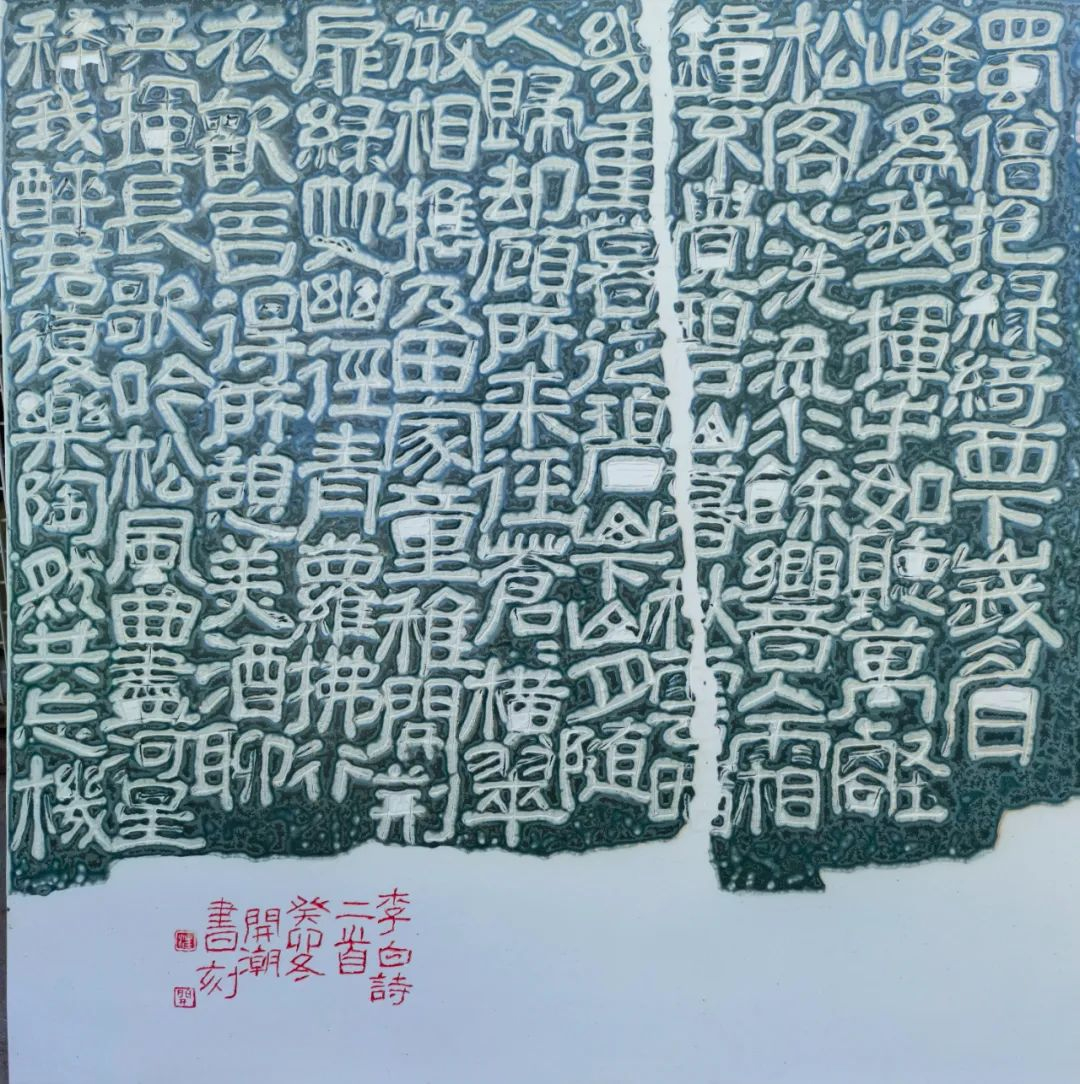 蜀僧抱綠綺西下峩眉
峰為我一揮手如聽萬壑
松客心洗流水餘響入霜
鐘不覺碧山暮秋雲暗
幾重暮從碧山下山月隨
人歸却顧所來徑蒼〻橫翠
微相攜及田家童稚開荊
扉綠竹入幽徑青蘿拂行
衣歡言得所憩美酒聊
共揮長歌吟松風曲盡河星
稀我醉君復樂陶然共忘機
李白詩
二首
癸卯冬
開潮
書刻